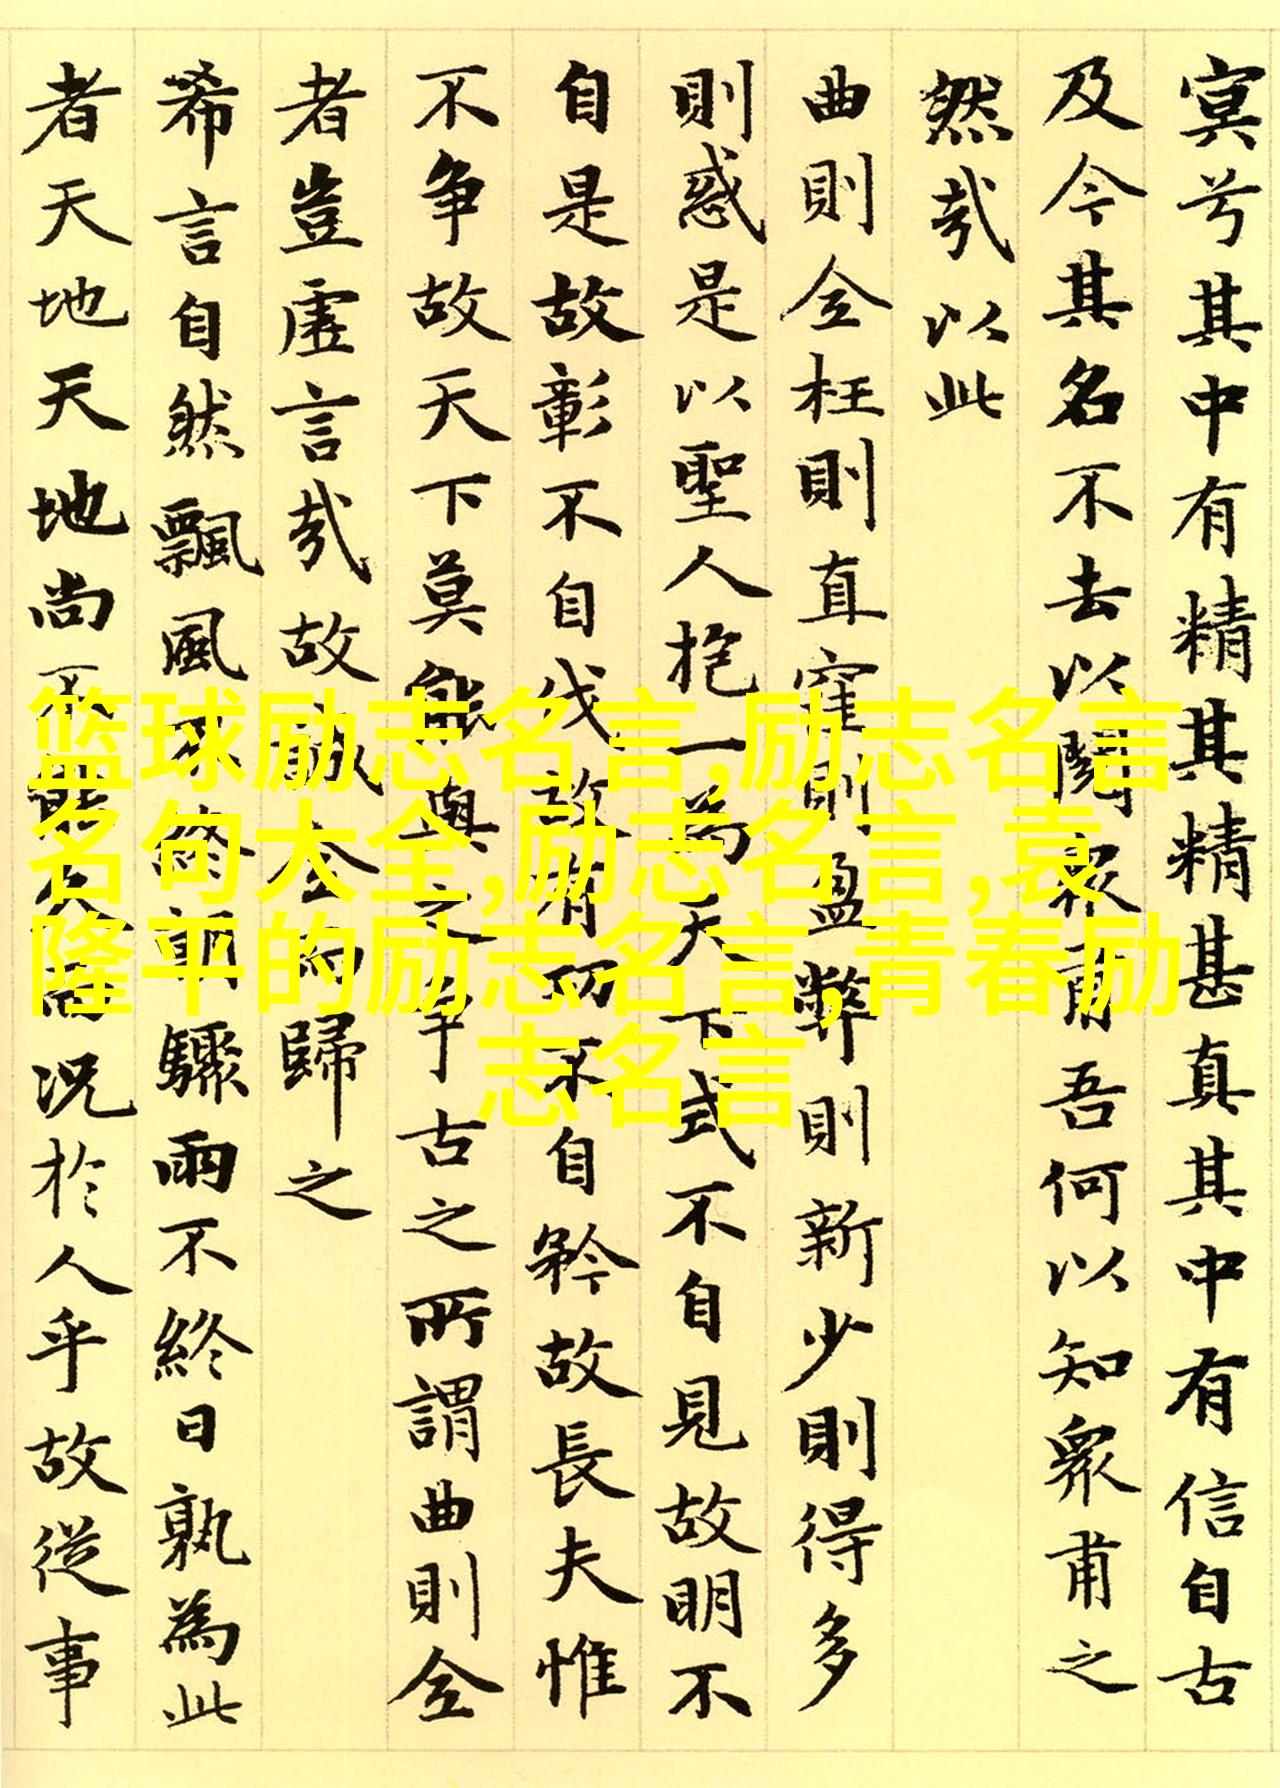 冥兮其中有精其精甚真其中有信自古
及今其名不去以閱衆甫吾何以知衆甫之
然哉以此
曲則全枉則直窪則盈弊則新少則得多
則惑是以聖人抱一為天下式不自見故明不
自是故彰不自伐故有功不自矜故長夫惟
不争故天下莫能與之争古之所謂曲則全
者豈虛言哉故誠全而歸之
希言自然飄風不終朝驟雨不終日孰為此
者天地天地尚不能久而況於人乎故從事
篮球励志名言,励志名言
名句大全,励志名言,袁
隆平的励志名言,青春励
志名言